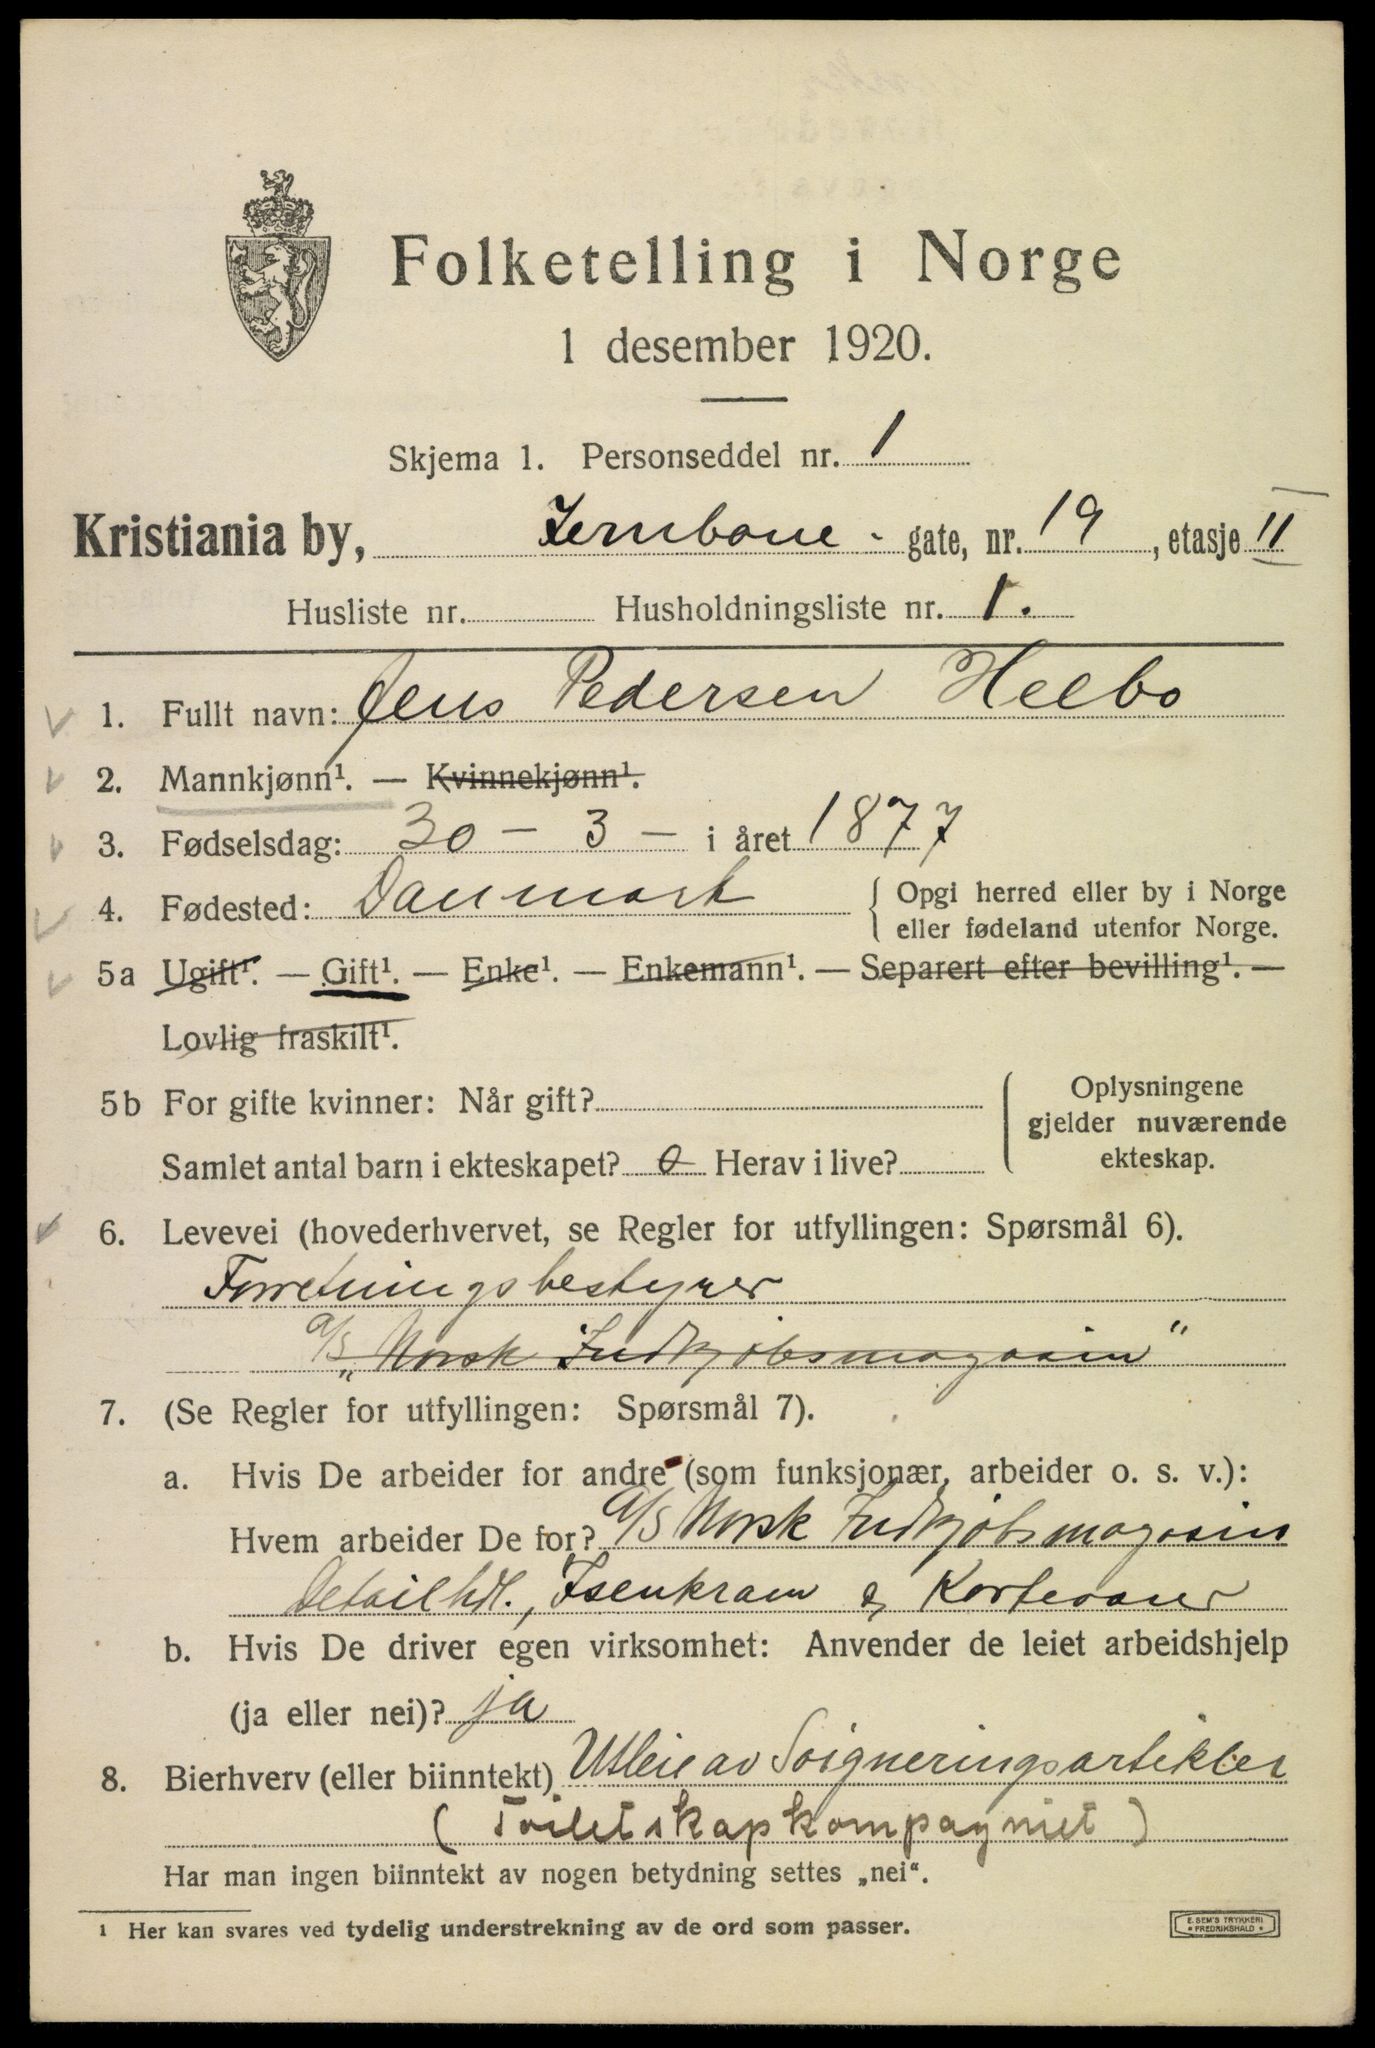 Folketelling i Norge
1 desember 1920.
Skjema 1. Personseddel nr. 1
Kristiania by, Jernbane - gate, nr. 19, etasje II
Husliste nr. Husholdningsliste nr. 1.
1. Fullt navn: Jens Pedersen Heebo
2. Mannkjønn¹. — Kvinnekjønn¹.
3. Fødselsdag: 30 - 3 - i året 1877
4. Fødested: Danmark { Opgi herred eller by i Norge
eller fødeland utenfor Norge.
5a Ugift¹. — Gift¹. — Enke¹. — Enkemann¹. — Separert efter bevilling¹. —
Lovlig fraskilt¹.
5b For gifte kvinner: Når gift? Oplysningene
gjelder nuværende
Samlet antal barn i ekteskapet? 0 Herav i live? ekteskap.
6. Levevei (hovederhvervet, se Regler for utfyllingen: Spørsmål 6).
Forretningsbestyrer
a/s „Norsk Indkjøbsmagasin"
7. (Se Regler for utfyllingen: Spørsmål 7).
a. Hvis De arbeider for andre (som funksjonær, arbeider o. s. v.):
Hvem arbeider De for? a/s Norsk Indkjøbsmagasin
Detailhdl., Isenkram & Kortevarer
b. Hvis De driver egen virksomhet: Anvender de leiet arbeidshjelp
(ja eller nei)? ja
8. Bierhverv (eller biinntekt) Utleie av Soigneringsartikler
(Toiletskapkompagniet)
Har man ingen biinntekt av nogen betydning settes „nei“.
¹ Her kan svares ved tydelig understrekning av de ord som passer.
E. SEM'S TRYKKERI
* FREDRIKSHALD *